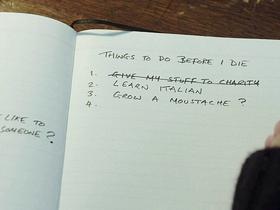 THINGS TO DO BEFORE I DIE
1. GIVE MY STUFF TO CHARITY
2. LEARN ITALIAN
3. GROW A MOUSTACHE ?
4.
LIKE TO
SOMEONE?